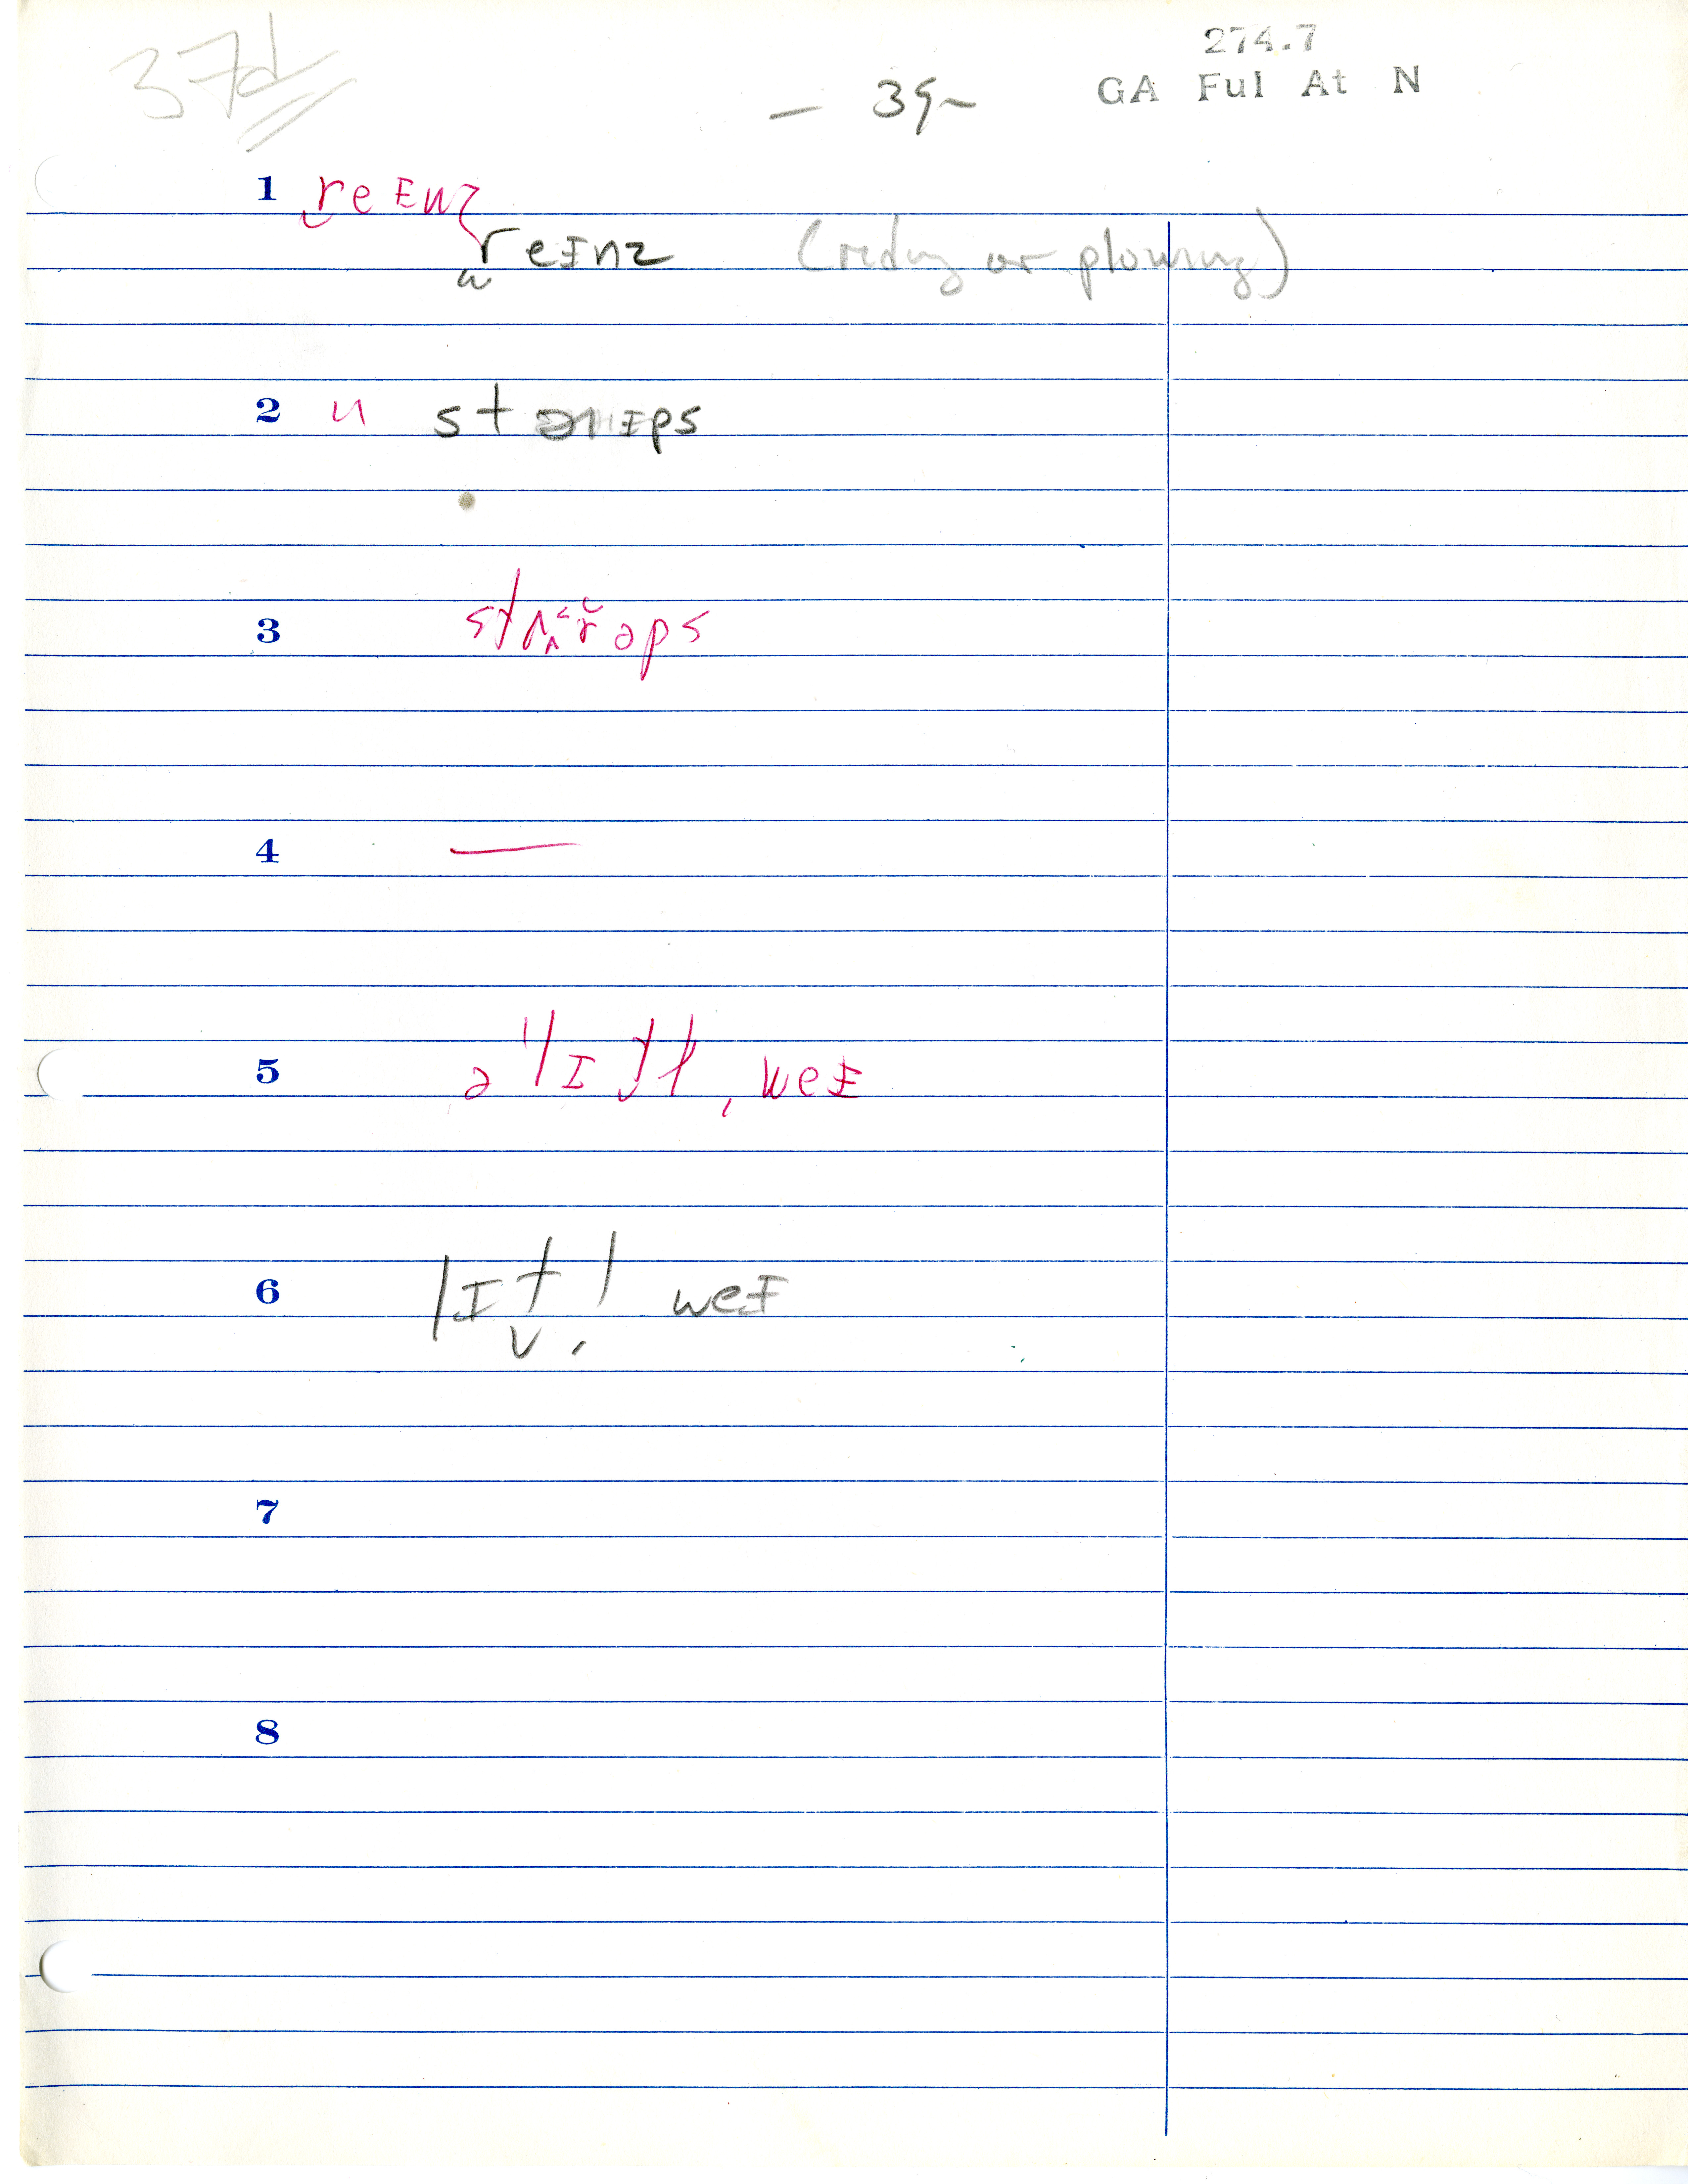 37d
274.7
- 39 -
GA Ful At N
1 reɪnz
reɪnz (riding or plowing)
2 stɚɪps
3 stʌrəps
4 —
5 ə lɪtl̩ weɪ
6 lɪt̬l̩ weɪ
7
8